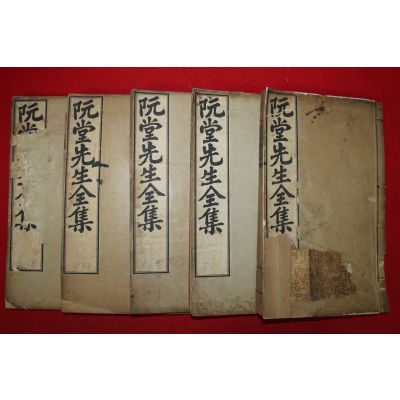 阮堂先生全集
阮堂先生全集
阮堂先生全集
阮堂先生全集
阮